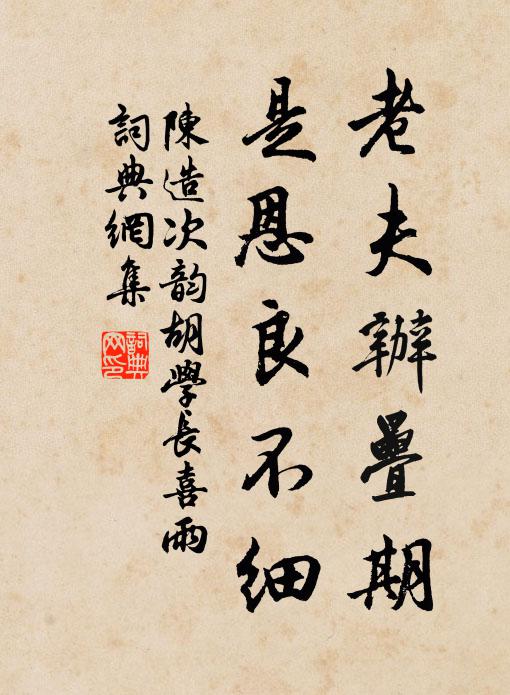 老夫辦疊期
是恩良不細
陳造次韵胡學長喜雨
詞典網集
詞典网印